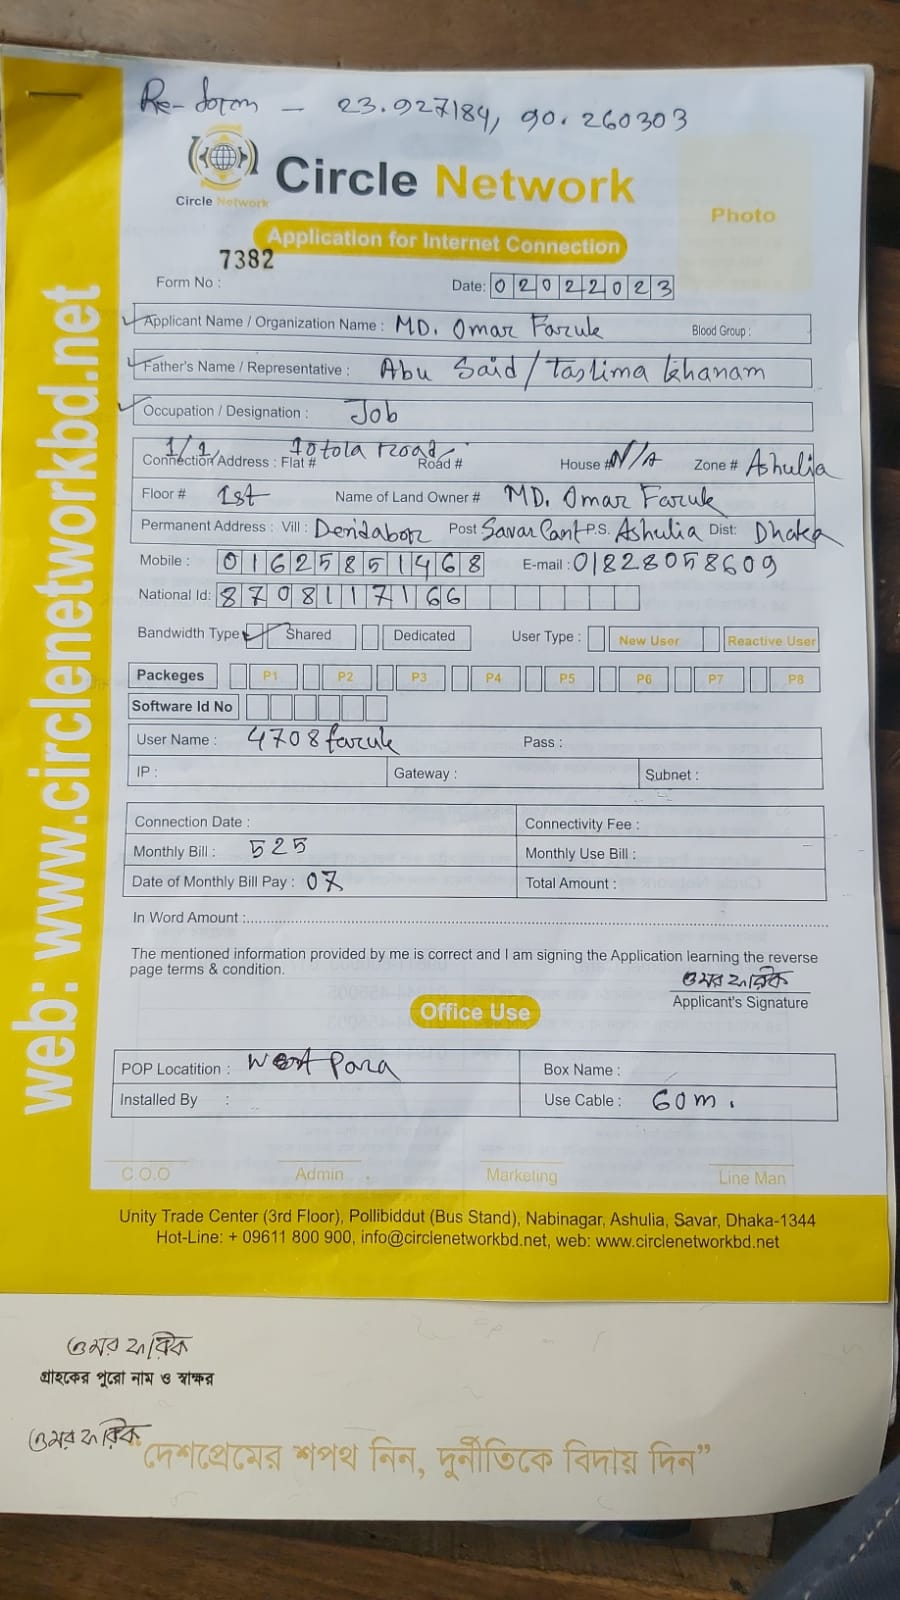 Re-form - 23.927184, 90.260303
Circle Network
Circle Network
Photo
Application for Internet Connection
7382
Form No :
Date: 02022023
Applicant Name / Organization Name : MD. Omar Faruk Blood Group :
Father's Name / Representative : Abu Said / Taslima Khanam
Occupation / Designation : Job
Connection Address : Flat # 1/1, 10tola Road Road # House # N/A Zone # Ashulia
Floor # 1st Name of Land Owner # MD. Omar Faruk
Permanent Address : Vill : Dendabor Post Savar Cant P.S. Ashulia Dist: Dhaka
Mobile : 01625851468 E-mail : 01828058609
National Id: 8708117166
Bandwidth Type Shared Dedicated User Type : New User Reactive User
Packeges P1 P2 P3 P4 P5 P6 P7 P8
Software Id No
User Name : 4708faruk Pass :
IP : Gateway : Subnet :
Connection Date : Connectivity Fee :
Monthly Bill : 525 Monthly Use Bill :
Date of Monthly Bill Pay : 07 Total Amount :
In Word Amount :
The mentioned information provided by me is correct and I am signing the Application learning the reverse
page terms & condition.
ওমর ফারুক
Applicant's Signature
Office Use
POP Locatition : West Para Box Name :
Installed By : Use Cable : 60m.
C.O.O Admin Marketing Line Man
Unity Trade Center (3rd Floor), Pollibiddut (Bus Stand), Nabinagar, Ashulia, Savar, Dhaka-1344
Hot-Line: + 09611 800 900, info@circlenetworkbd.net, web: www.circlenetworkbd.net
web: www.circlenetworkbd.net
ওমর ফারুক
গ্রাহকের পুরো নাম ও স্বাক্ষর
ওমর ফারুক
“দেশপ্রেমের শপথ নিন, দুর্নীতিকে বিদায় দিন”